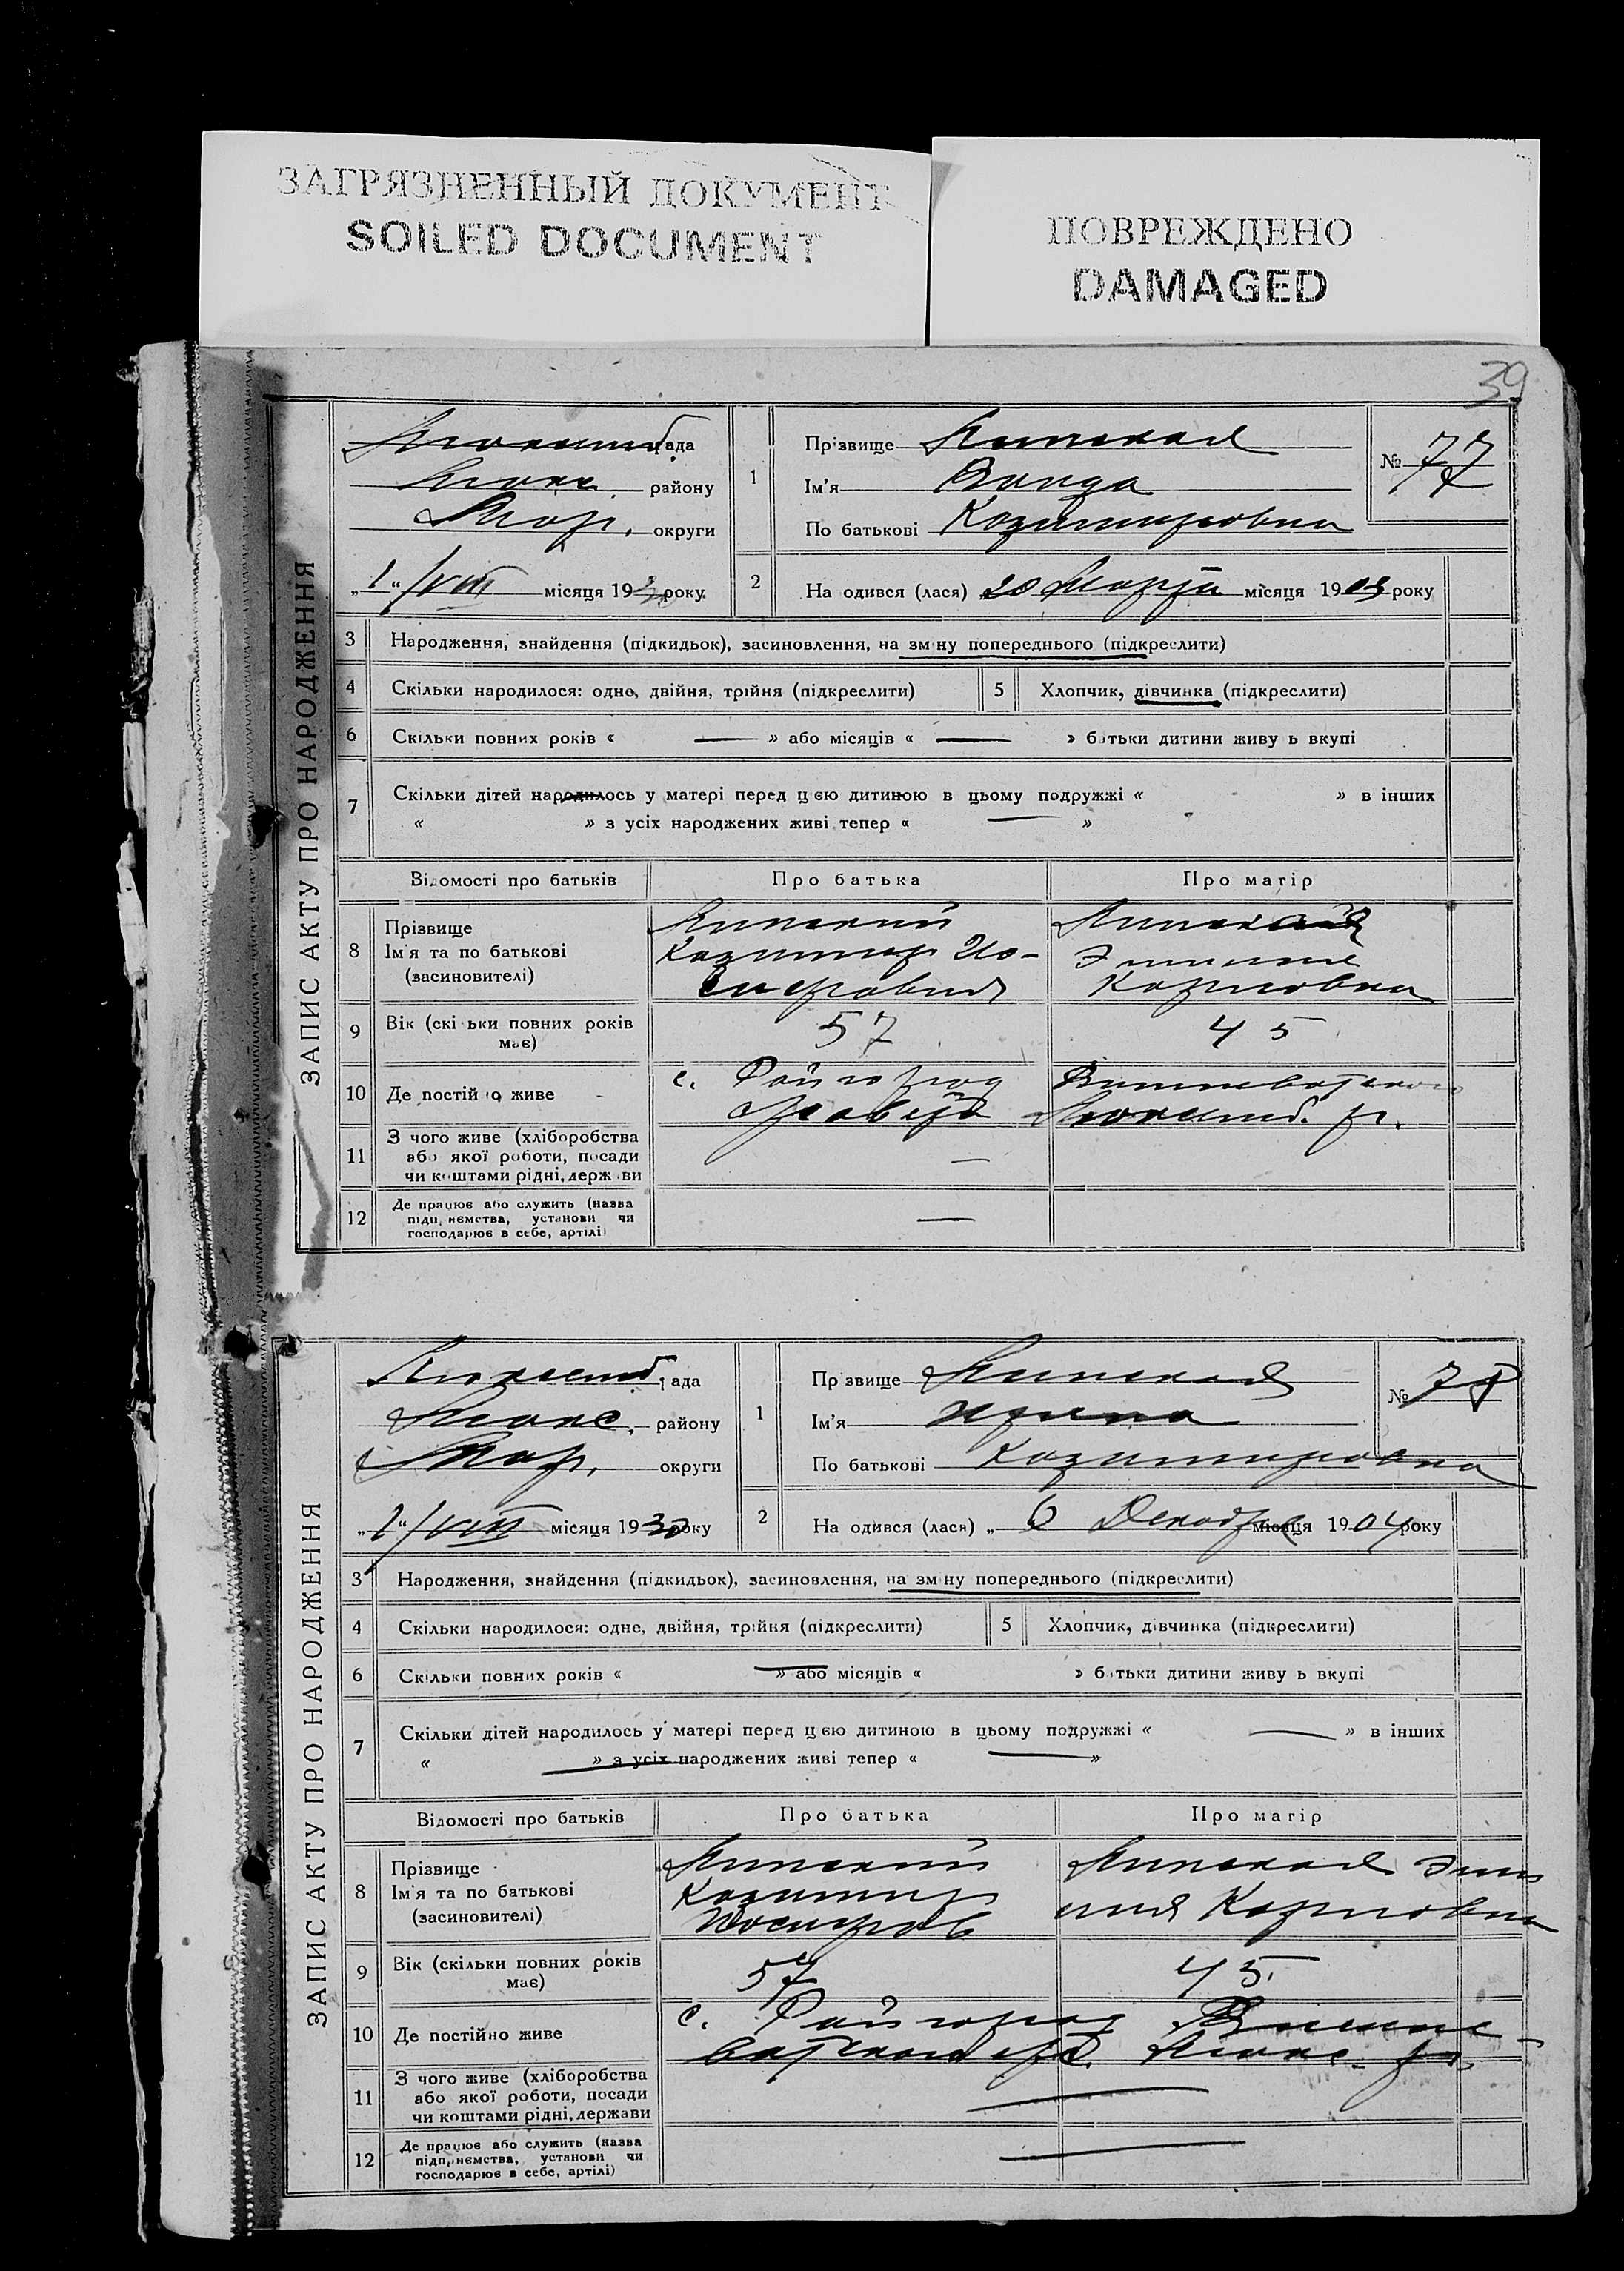 ЗАГРЯЗНЕННЫЙ ДОКУМЕНТ
SOILED DOCUMENT
ПОВРЕЖДЕНО
DAMAGED
39
ЗАПИС АКТУ ПРО НАРОДЖЕННЯ
рада
району
округи
„1“ /VIII місяця 1930 року
1
Прізвище Липская
Ім'я Ванда
По батькові Казимировна
№ 77
2
На одився (лася) 20 Марта місяця 1903 року
3 Народження, знайдення (підкидьок), засиновлення, на зміну попереднього (підкреслити)
4 Скільки народилося: одне, двійня, трійня (підкреслити)
5 Хлопчик, дівчинка (підкреслити)
6 Скільки повних років « — » або місяців « — » батьки дитини живу ь вкупі
7 Скільки дітей народилось у матері перед цією дитиною в цьому подружжі « » в інших
« » з усіх народжених живі тепер « — »
Відомості про батьків
Про батька
Про матір
8 Прізвище
Ім'я та по батькові
(засиновителі)
Липский
Казимир Ио-
сифович
Липская
Эмилия
Карловна
9 Вік (скі ьки повних років
має)
57
45
10 Де постійно живе
с. Райгород
11 З чого живе (хліборобства
або якої роботи, посади
чи коштами рідні, держави
—
12 Де працює або служить (назва
підприємства, установи чи
господарює в себе, артілі)
—
ЗАПИС АКТУ ПРО НАРОДЖЕННЯ
рада
району
округи
„1“ /VIII місяця 1930 року
1
Пр звище Липская
Ім'я Ирина
По батькові Казимировна
№ 78
2
На одився (лася) „ 6 Декабря місяця 1904 року
3 Народження, знайдення (підкидьок), засиновлення, на зміну попереднього (підкреслити)
4 Скільки народилося: одне, двійня, трійня (підкреслити)
5 Хлопчик, дівчинка (підкреслити)
6 Скільки повних років « — » або місяців « » батьки дитини живу ь вкупі
7 Скільки дітей народилось у матері перед цією дитиною в цьому подружжі « — » в інших
« » з усіх народжених живі тепер « — »
Відомості про батьків
Про батька
Про матір
8 Прізвище
Ім'я та по батькові
(засиновителі)
Липский
Казимир
Иосифов
Липская Эми
лия Карловна
9 Вік (скільки повних років
має)
57
45
10 Де постійно живе
с. Райгород
11 З чого живе (хліборобства
або якої роботи, посади
чи коштами рідні, держави
—
12 Де працює або служить (назва
підприємства, установи чи
господарює в себе, артілі)
—